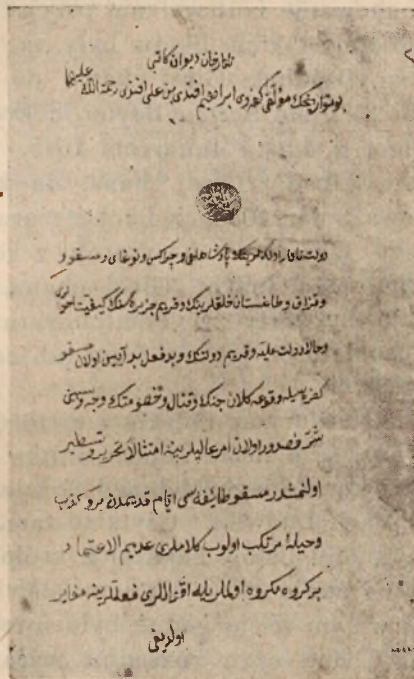 تاتارخان ديوان كاتبى
بو تواريخك مؤلفى كفه‌وى ابراهيم افندى بن على افندى رحمة الله عليهما
دولت تاتار اولكه‌سنك پادشاهلغى و چراكس و نوغاى و مسقو و
و قزاق و طاغستان خلقلرينك و قريم جزيره‌سنك كيفيت
و حالا دولت عليه و قريم دولتنك و بدفعل بدآيين اولان مسقو
كفره‌سيله وقوعه كلان جنك و قتال و خصومتك وجه و سببنى
شرفصدور اولان امر عاليلرينه امتثالا تحرير و تسطير
اولنمشدر مسقو طائفه‌سى ايام قديمدن برو كذب
و حيله مرتكب اولوب كلاملرى عديم الاعتماد
بر كروه مكروه اولملريله اقراللرى فعللرينه مغاير
اولديغى